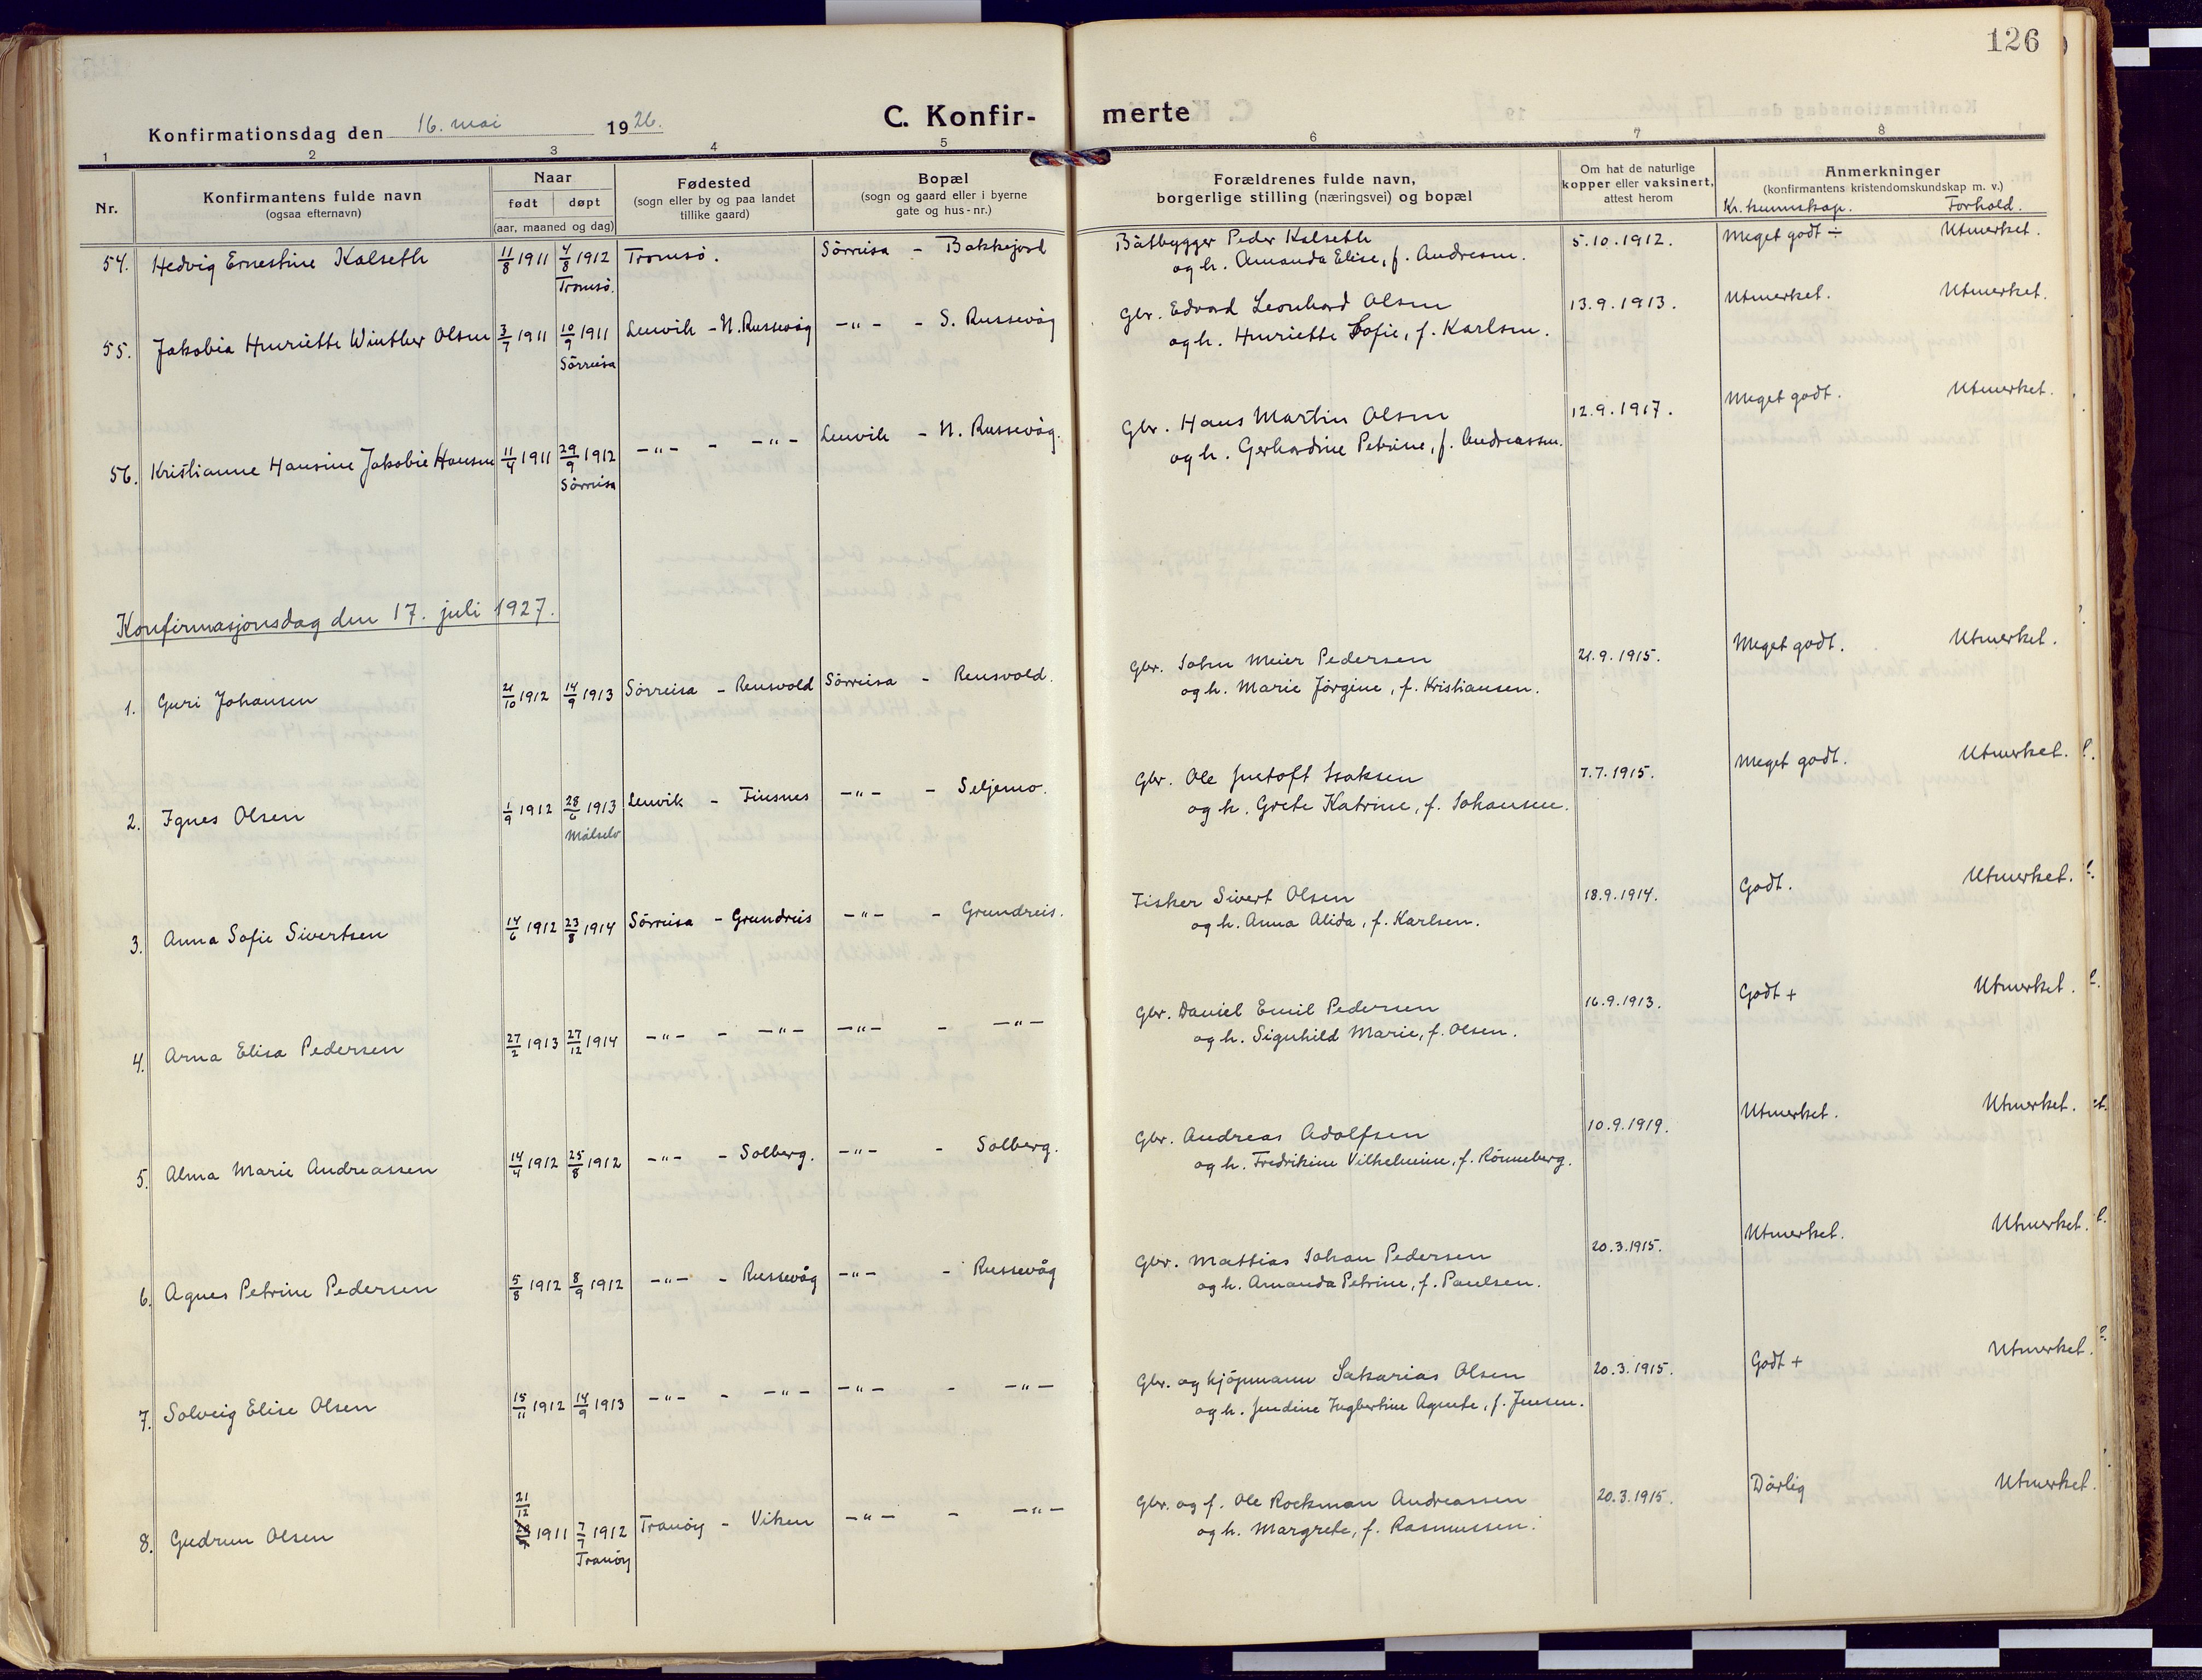 126
Konfirmationsdag den 16. mai 1926.
C. Konfir- merte
1 2 3 4 5 6 7 8
Nr.
Konfirmantens fulde navn
(ogsaa efternavn)
Naar
født døpt
(aar, maaned og dag)
Fødested
(sogn eller by og paa landet
tillike gaard)
Bopæl
(sogn og gaard eller i byerne
gate og hus-nr.)
Forældrenes fulde navn,
borgerlige stilling (næringsvei) og bopæl
Om hat de naturlige
kopper eller vaksinert,
attest herom
Anmerkninger
(konfirmantens kristendomskundskap m. v.)
Kr. kunnskap. Forhold.
54. Hedvig Ernestine Kalseth 11/8 1911 4/8 1912 Tromsö. Sörreisa - Bakkejord Båtbygger Peder Kalseth 5.10.1912. Meget godt ÷ Utmerket.
Tromsö. og h. Amanda Elise, f. Andresen.
55. Jakobia Henriette Winther Olsen 3/7 1911 10/9 1911 Lenvik - N. Russevåg -"- - S. Russevåg Gbr. Edvard Leonhard Olsen 13.9.1913. Utmerket. Utmerket.
Sörreisa og h. Henriette Sofie, f. Karlsen.
56. Kristianne Hansine Jakobie Hansen 11/4 1911 29/9 1912 -"- - -"- Lenvik - N. Russevåg. Gbr. Hans Martin Olsen 12.9.1917. Meget godt. Utmerket.
Sörreisa og h. Gerhardine Petrine, f. Andreassen.
Konfirmasjonsdag den 17. juli 1927.
1. Guri Johansen 21/10 1912 14/9 1913 Sörreisa - Rensvold Sörreisa - Rensvold. Gbr. Johan Meier Pedersen 21.9.1915. Meget godt. Utmerket.
og h. Marie Jörgine, f. Kristiansen.
2. Ignes Olsen 1/9 1912 28/6 1913 Lenvik - Finsnes -"- - Seljemo. Gbr. Ole Justoft Isaksen 7.7.1915. Meget godt. Utmerket.
Målselv og h. Grete Katrine, f. Johansen.
3. Anna Sofie Sivertsen 14/6 1912 23/8 1914 Sörreisa - Grundreis -"- - Grundreis. Fisker Sivert Olsen 18.9.1914. Godt. Utmerket.
og h. Anna Alida, f. Karlsen.
4. Arna Elisa Pedersen 27/2 1913 27/12 1914 -"- - -"- -"- - -"- Gbr. Daniel Emil Pedersen 16.9.1913. Godt + Utmerket.
og h. Signhild Marie, f. Olsen.
5. Alma Marie Andreassen 14/4 1912 25/8 1912 -"- - Solberg. -"- - Solberg. Gbr. Andreas Adolfsen 10.9.1919. Utmerket. Utmerket.
og h. Fredrikine Vilhelmine, f. Rönneberg.
6. Agnes Petrine Pedersen 5/8 1912 8/9 1912 -"- - Russevåg -"- - Russevåg Gbr. Mattias Johan Pedersen 20.3.1915. Utmerket. Utmerket.
og h. Amanda Petrine, f. Paulsen.
7. Solveig Elise Olsen 15/11 1912 14/9 1913 -"- - -"- -"- - -"- Gbr. og kjöpmann Sakarias Olsen 20.3.1915. Godt + Utmerket.
og h. Jendine Ingbertine Agnete, f. Jensen.
8. Gudrun Olsen 21/12 1911 7/7 1912 Tranöy - Viken -"- - -"- Gbr. og f. Ole Rockman Andreassen 20.3.1915. Dårlig Utmerket.
Tranöy og h. Margrete, f. Rasmussen.